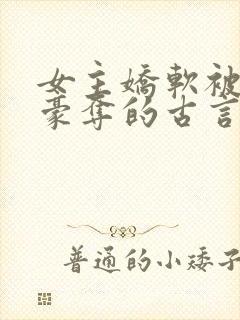 女主嬌軟被
豪奪的古言
普通的小矮子